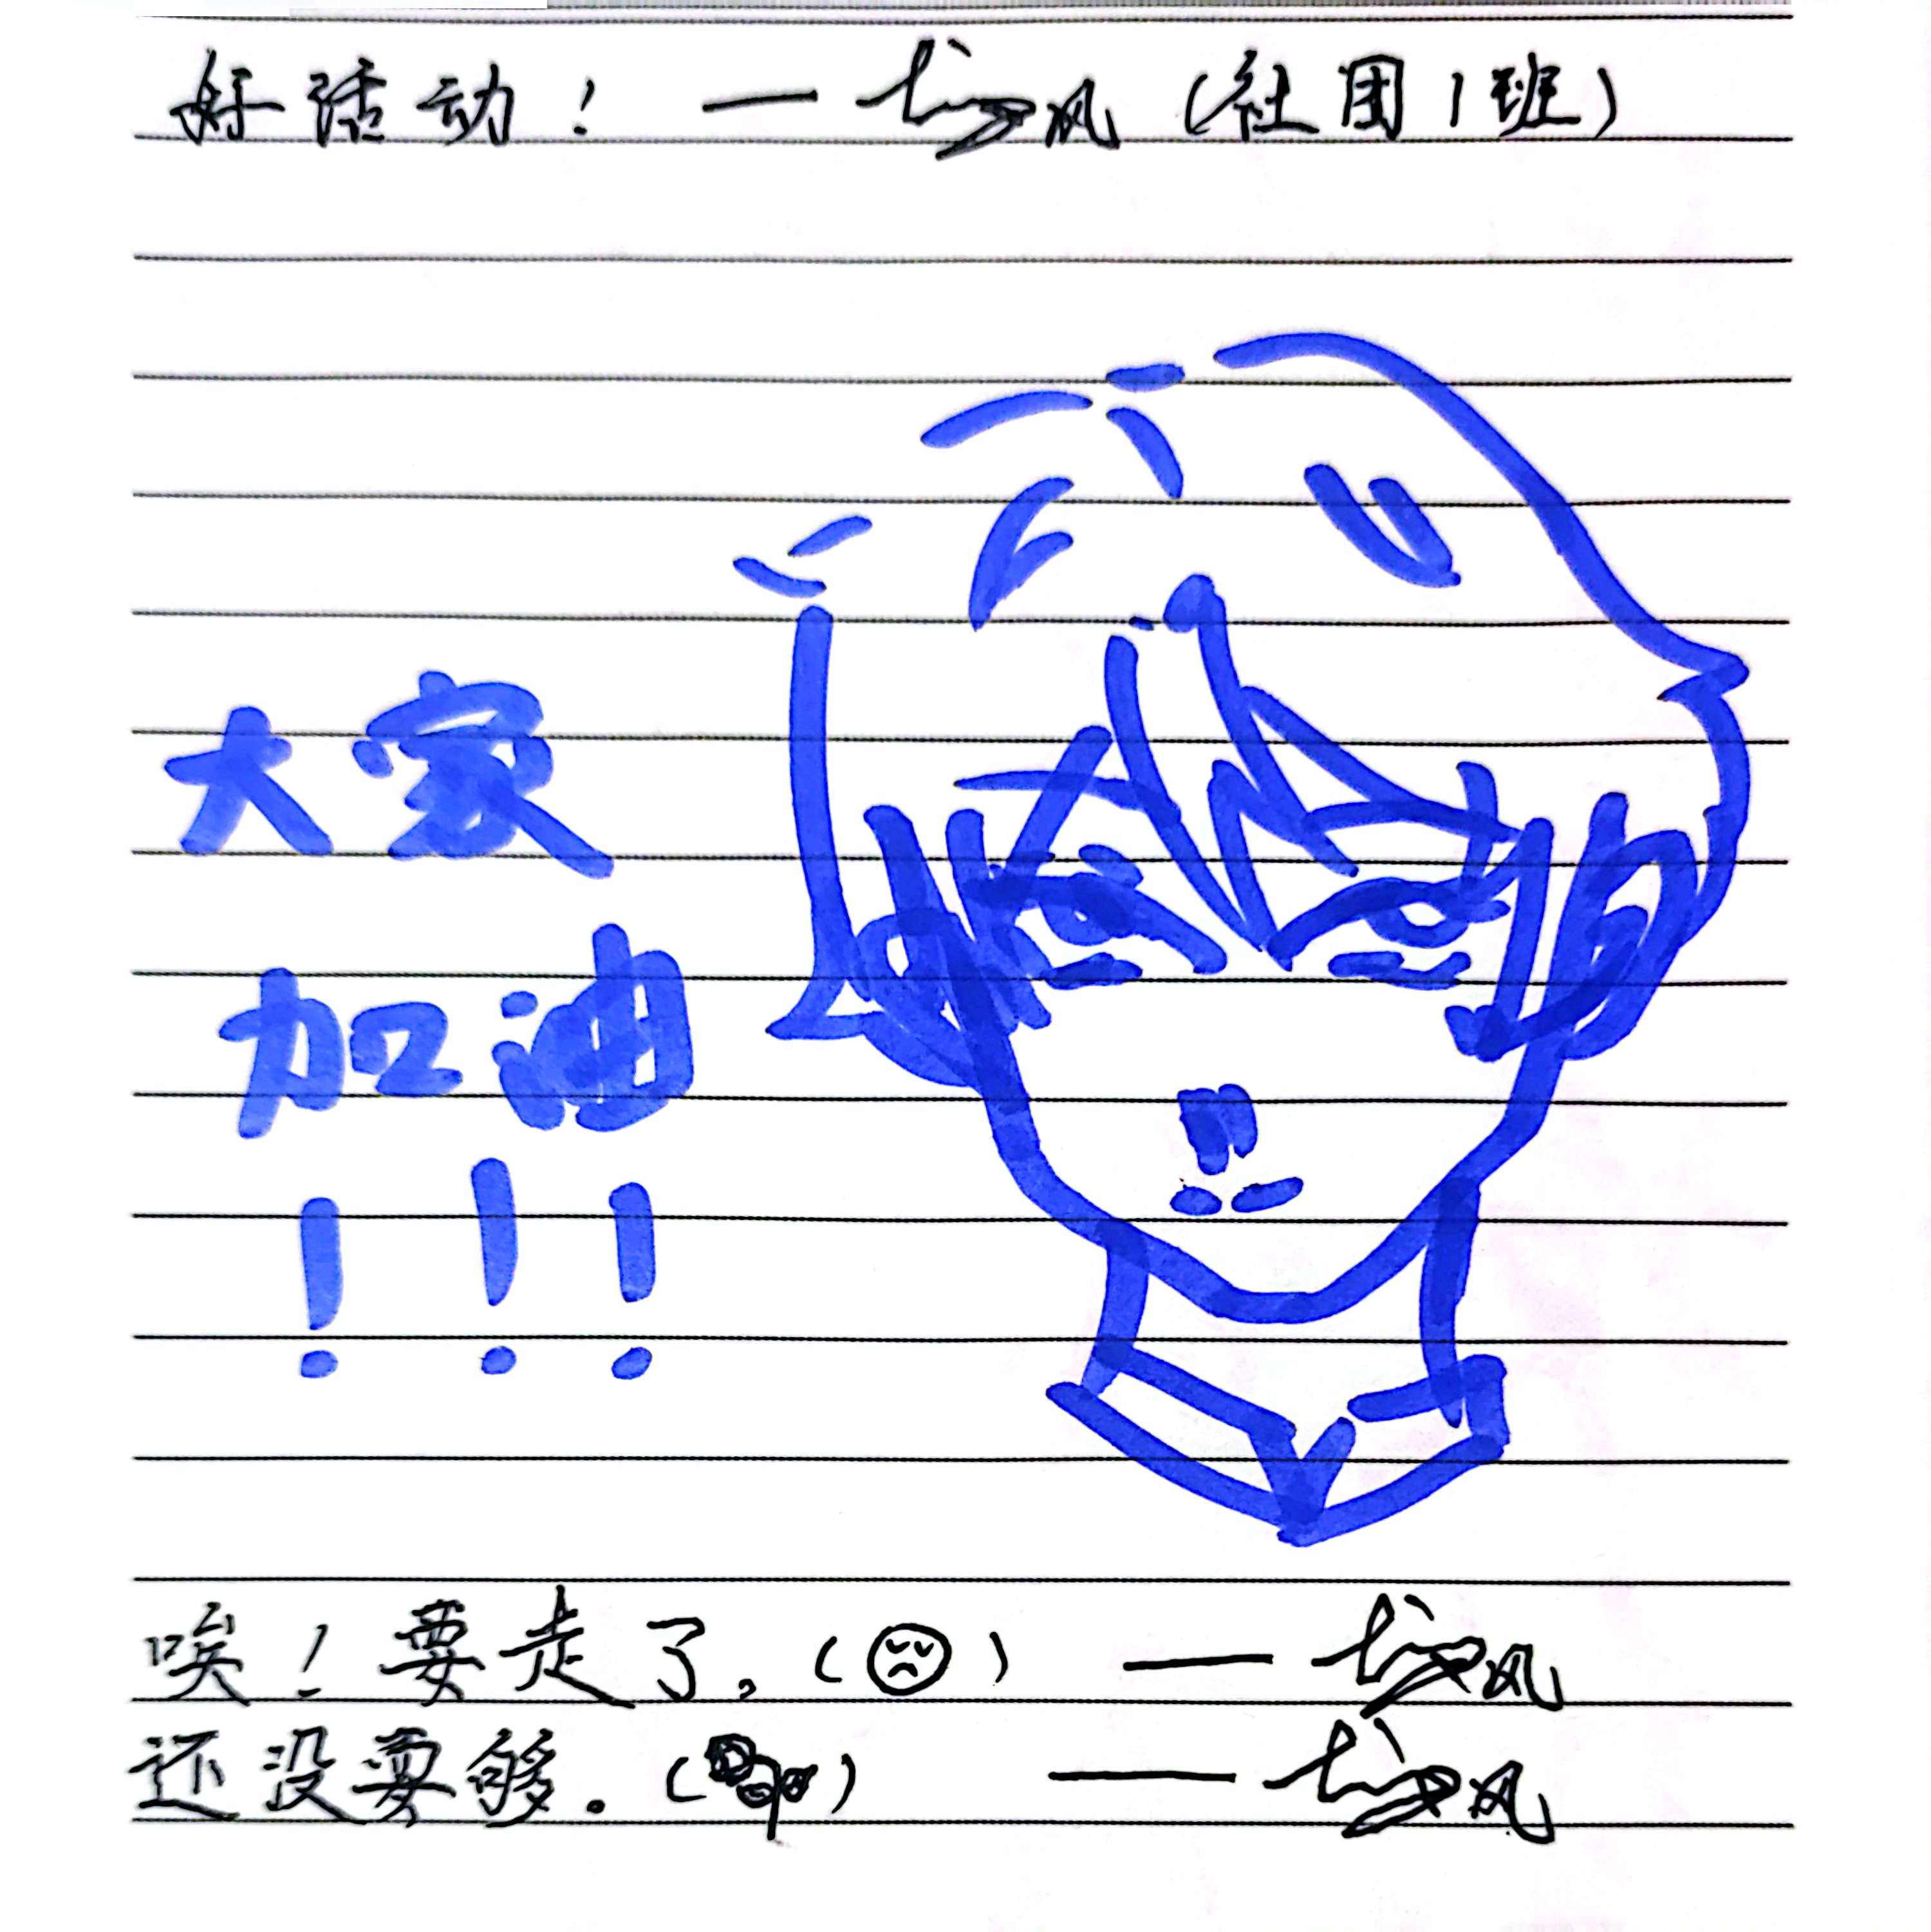 好活动！ — 风（社团1班）
大家
加油
！！！
唉！要走了。（） — 风
还没耍够。（） — 风